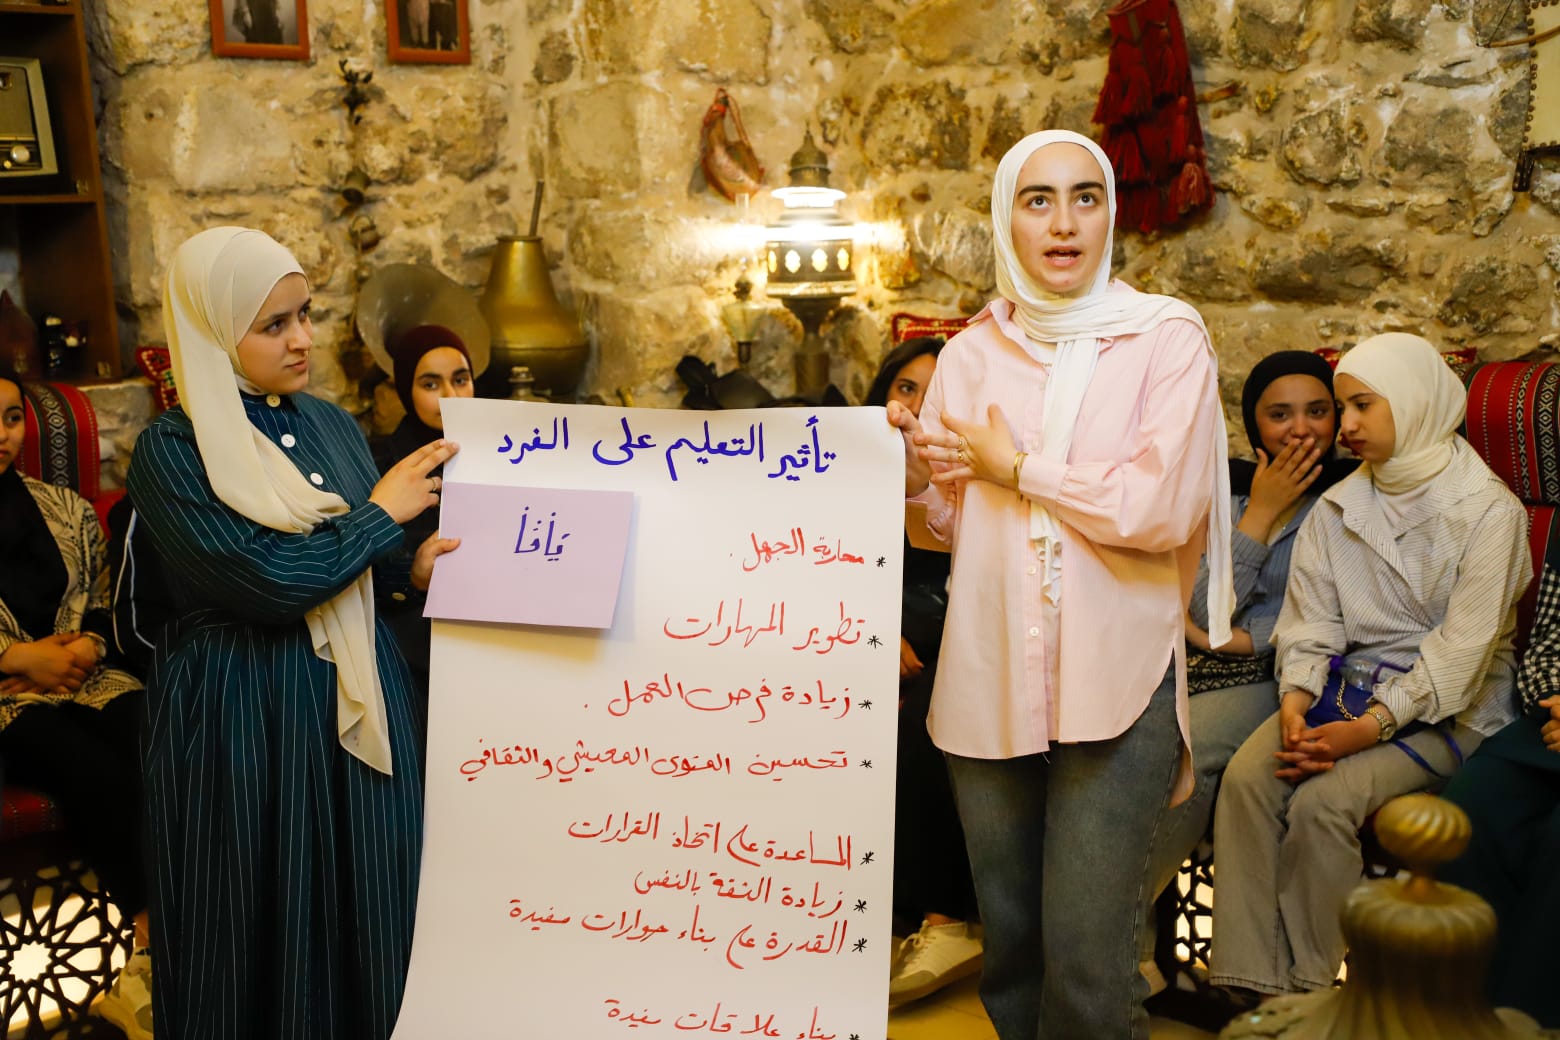 تأثير التعليم على الفرد
يافا
* محاربة الجهل.
* تطوير المهارات
* زيادة فرص العمل.
* تحسين المستوى المعيشي والثقافي
* المساعدة على اتخاذ القرارات
* زيادة الثقة بالنفس
* القدرة على بناء حوارات مفيدة
* بناء علاقات مفيدة